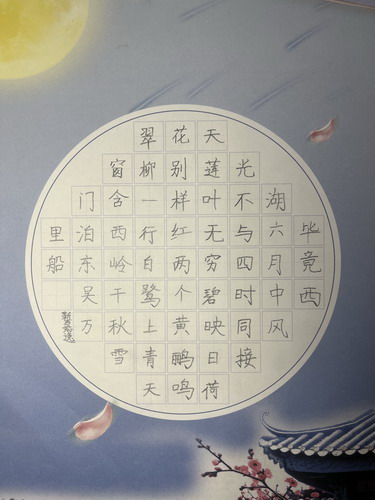 毕竟西
湖六月中风
光不与四时同接
天莲叶无穷碧映日荷
花别样红两个黄鹂鸣
翠柳一行白鹭上青天
窗含西岭千秋雪
门泊东吴万
里船